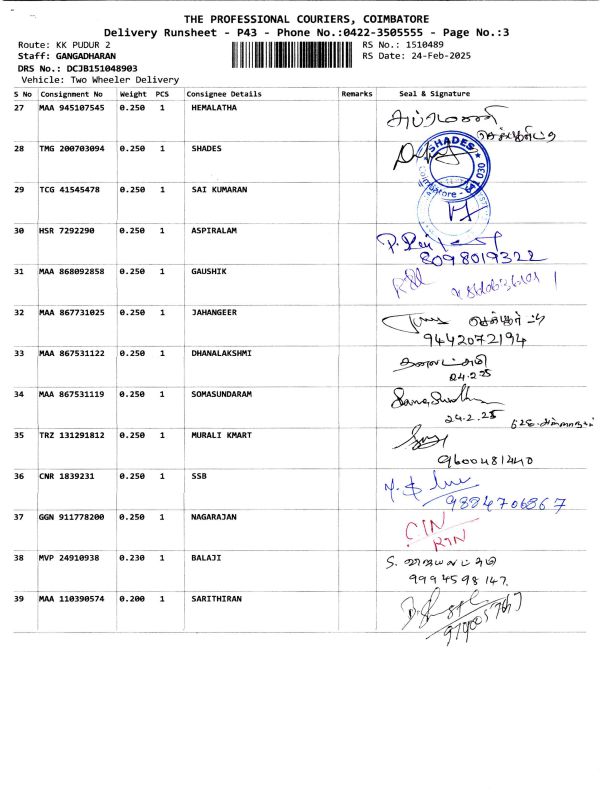 THE PROFESSIONAL COURIERS, COIMBATORE
Delivery Runsheet - P43 - Phone No.:0422-3505555 - Page No.:3
Route: KK PUDUR 2 RS No.: 1510489
Staff: GANGADHARAN RS Date: 24-Feb-2025
DRS No.: DCJB151048903
Vehicle: Two Wheeler Delivery
S No Consignment No Weight PCS Consignee Details Remarks Seal & Signature
27 MAA 945107545 0.250 1 HEMALATHA
28 TMG 200703094 0.250 1 SHADES
SHADES
Coimbatore - 641 030
29 TCG 41545478 0.250 1 SAI KUMARAN
30 HSR 7292290 0.250 1 ASPIRALAM
8098019322
31 MAA 868092858 0.250 1 GAUSHIK
32 MAA 867731025 0.250 1 JAHANGEER
9442072194
33 MAA 867531122 0.250 1 DHANALAKSHMI
24.2.25
34 MAA 867531119 0.250 1 SOMASUNDARAM
24.2.25
35 TRZ 131291812 0.250 1 MURALI KMART
9600481440
36 CNR 1839231 0.250 1 SSB
9884706867
37 GGN 911778200 0.250 1 NAGARAJAN
CIN
RTN
38 MVP 24910938 0.230 1 BALAJI
9994598147.
39 MAA 110390574 0.200 1 SARITHIRAN